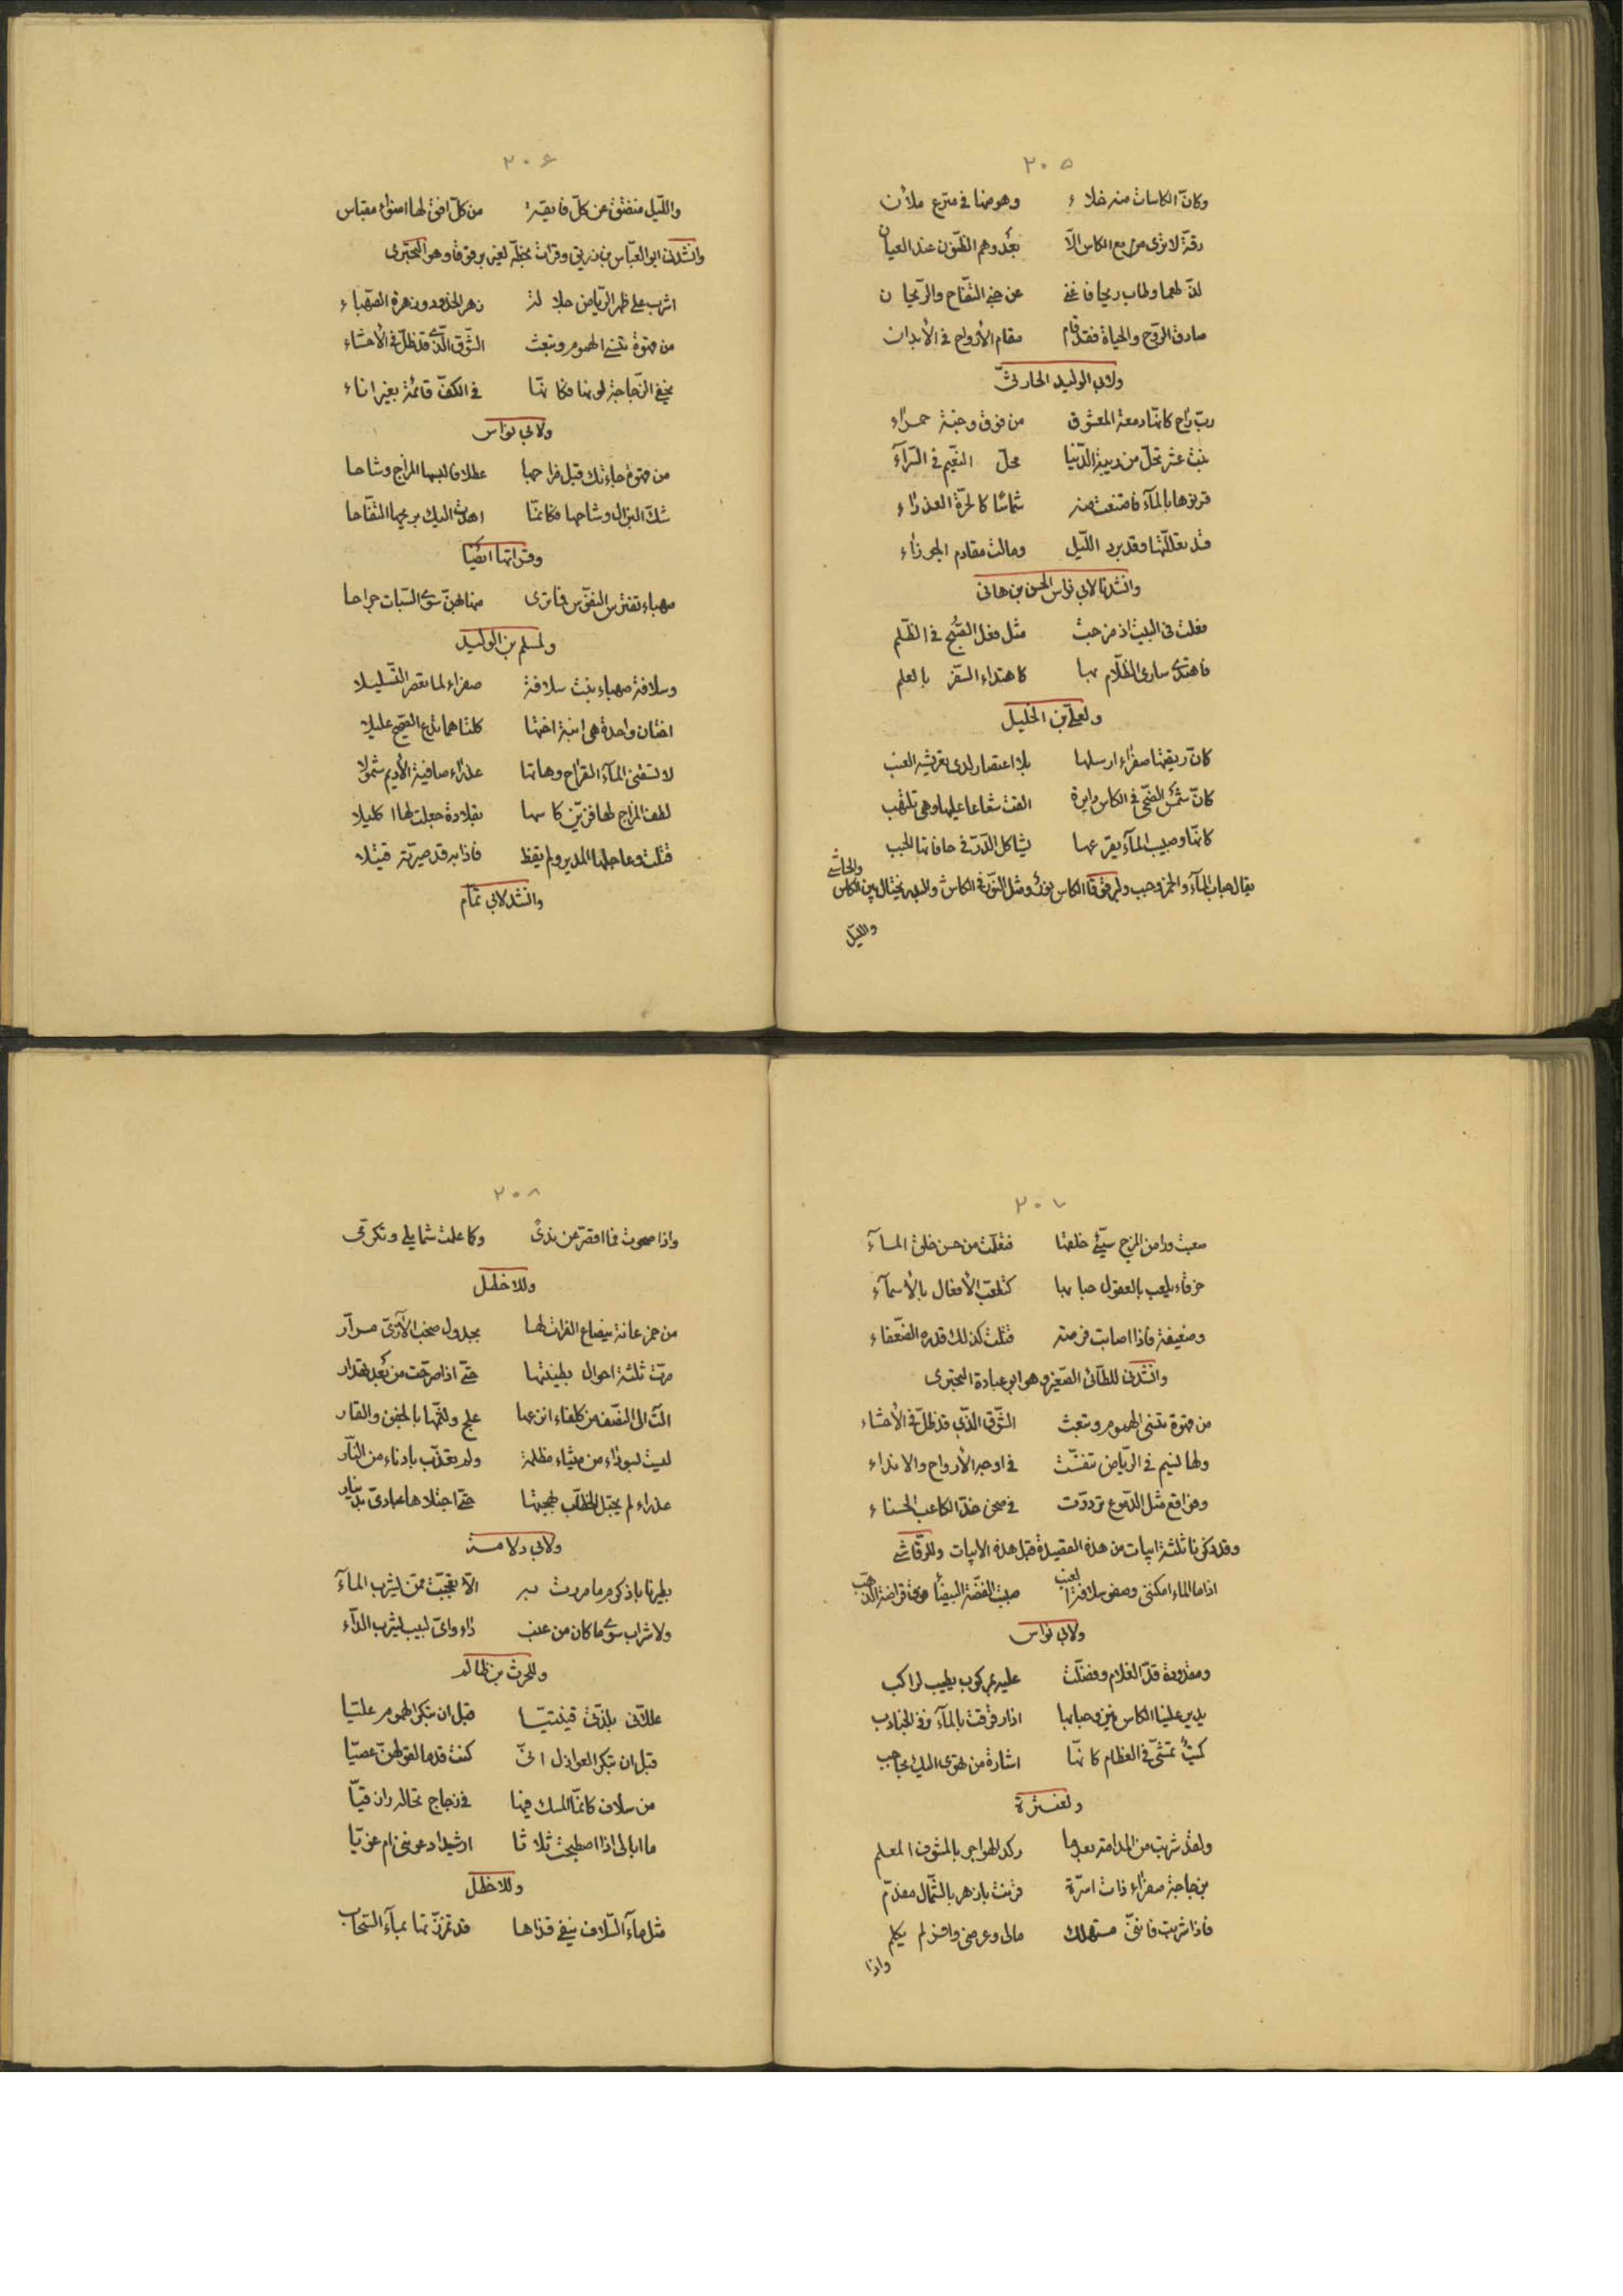 ٢٠٥
وكانّ الكاسات منه خلاء وهو منها فى مترع ملآن
رقّة لا ترى من مع الكاس الّا بعد وهم الظنون عند العيان
لذّ طعما وطاب ريحا فاغنى عن جنى التفّاح والرّيحان
صارف الرّوح والحياة فقد قام مقام الأرواح فى الأبدان
ولابى الوليد الحارثىّ
ربّ راح كانّها دمعة المعشوق من فوق وجنة حمراء
بنت عشر تحلّ من الدّنيا محلّ النعيم فى السّرآء
قربوها بالمآء فامتنعت منه شماسًا كالحرّة العذراء
قد تعللتها وقد برد اللّيل ومالت مقادم الجوزاء
وانشدنا لابى نواس الحسن بن هانى
فعلت فى البيت اذ مزجت مثل فعل الصّبح فى الظّلم
فاهتدى سارى الظّلام بها كاهتداء السّفر بالعلم
ولعلىّ بن الخليل
كانّ ريقتها صفراء ارسلها بلا اعتصار لدى تعريشه العنب
كانّ شمس الضّحى فى الكاس دايرة القت شعاعا عليها وهى تلتهب
كانّها وصبيب المآء يقرعها يشاكل الدّرّ فى حافاتها الحبب
يقال حباب المآء والخمر وحبب ولم فوقها الكاس نور ومثل النّور فى الكاس والبدر يختال بين الكاس
والحاشى
واللّيل
٢٠٦
واللّيل منفتق عن كلّ فايقة من كلّ افق لها اضواء مقباس
وانشدنى ابو العبّاس بن زريق وقرات بخطّه لغيره وهو البحترى
اشرب على زهر الرّياض جلاله زهر الخدود وزهرة الصّهباء
من قهوة تنسى الهموم وتبعث الشّوق الّذى قد ظلّ فى الأحشاء
يخفى الزّجاجة لونها فكانّها فى الكفّ قائمة بغير اناء
ولابى نواس
من قهوة جاءتك قبل مزاجها عطلا فالبسها المزاج وشاحا
شكّ البزال وشاحها فكانّما اهدت اليك بريحها التفّاحا
وقراتها ايضًا
صهباء تفترس النفوس فما ترى منها لهنّ سوى السّبات جراحا
ولمسلم بن الوليد
وسلافة صهباء بنت سلافة صفراء لما تعصر التّسليلا
اختان واحدة هى ابنة اختها كلتاهما تدع الصّحيح عليلا
لا تسقنى المآء القراح وهاتها عذراء صافية الأديم شمولا
لطف المزاج لها فزيّن كاسها بقلادة جعلت لها اكليلا
قتلت وعاجلها المدير ولم يقظ فاذا به قد صيرته قتيلا
وانشد لابى تمّام
٢٠٧
صعبت وراض المزج سيّئ خلقها فتعلّمت من حسن خلق المآء
خرقاء يلعب بالعقول حبابها كتلعّب الأفعال بالأسمآء
وضعيفة فاذا اصابت فرصة قتلت كذلك قدرة الضّعفاء
وانشدنى للطّائى الصّغير وهو ابو عبادة البحترى
من قهوة تنسى الهموم وتبعث الشّوق الذّى قد ظلّ فى الأحشاء
ولها نسيم فى الرّياض تنفّست فى اوجه الأرواح والانداء
وفواقع مثل الدّموع تردّدت فى صحن خدّ الكاعب الحسناء
وقد ذكرنا ثلثة ابيات من هذه القصيدة قبل هذه الابيات وللرّقاشى
اذا ما الماء امكننى وصفو سلافة العنب صببت الفضّة البيضاء فوق قراضة الذّهب
ولابى نواس
ومقدودة قدّ الغلام وفضّلت عليه بمركوب يطيب لراكب
يدير علينا الكاس بينى وحبابها اذا رقرقت بالمآء وفى الجنادب
كميت تمشّى فى العظام كانّها اشارة من تهوى اليك بحاجب
ولعنترة
ولقد شربت من المدامة بعد ما ركد الهواجر بالمشوف المعلم
بزجاجة صفراء ذات اسرّة قرنت بازهر بالشّمال مفدّم
فاذا شربت فانّنى مستهلك مالى وعرضى وافر لم يكلم
واذا
٢٠٨
واذا صحوت فما اقصر عن ندىً وكما علمت شمايلى وتكرّمى
وللاخطل
من خمر عانة ينصاع الفرات لها بجدول صخب الآذىّ مرّار
مرّت ثلثة احوال بطينتها حتّى اذا صرّحت من بعد تهدار
آلت الى النصف من كلفاء اترعها علج ولثّمها بالجفن والقار
ليست بسوداء من ميثاء مظلمة ولم تعذّب بادناء من النّار
عذراء لم يجتل الخطّاب بهجتها حتّى اجتلاها عبادىّ بدينار
ولابى دلامة
ولا شراب سوى ما كان من عنب داء واىّ لبيب يشرب الدّآء
وللحرث بن ظالم
علّلانى بلذّتى قينتيّا قبل ان تبكر الهموم عليّا
قبل ان تبكر العواذل انّى كنت قدما لقولهنّ عصيّا
من سلاف كانّما المسك فيها فى زجاج تخاله رازقيّا
ما ابالى اذا اصطبحت ثلاثا ارشيدا دعوتنى ام غويّا
وللاخطل
مثل مآء السّلاف ينفى قذاها قد تمزّزتها بمآء السّحاب